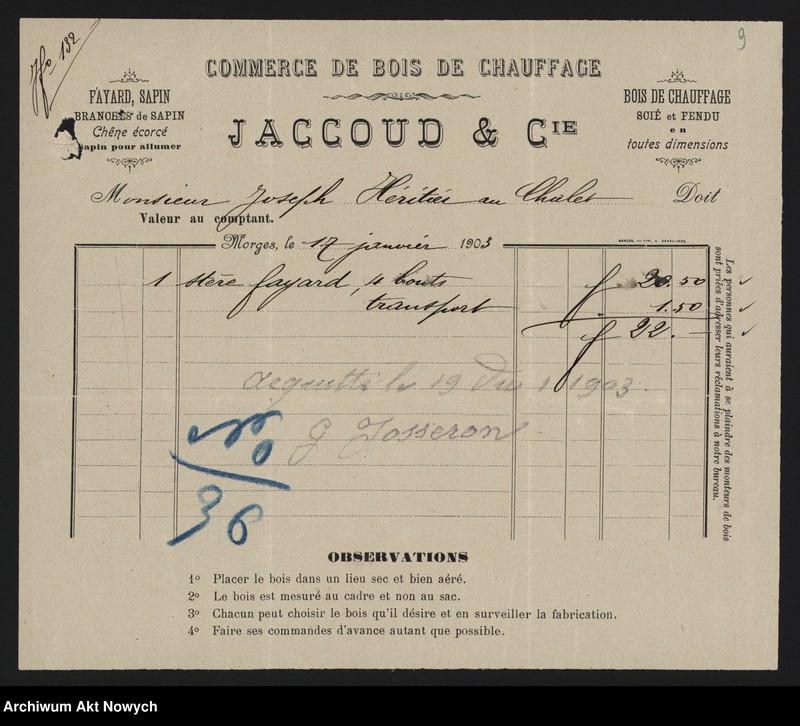 fo 132
9
COMMERCE DE BOIS DE CHAUFFAGE
FAYARD, SAPIN
BRANCHES de SAPIN
Chêne écorcé
Sapin pour allumer
JACCOUD & CIE
BOIS DE CHAUFFAGE
SCIÉ et FENDU
en
toutes dimensions
Monsieur Joseph Héritier au Chalet Doit
Valeur au comptant.
Morges, le 17 janvier 1903
1 stère fayard, 4 bouts f 20.50
transport 1.50
f 22.—
Acquitté le 19 1 1903
G Josseron
No
36
Les personnes qui auraient à se plaindre des monteurs de bois
sont priées d'adresser leurs réclamations à notre bureau.
OBSERVATIONS
1o Placer le bois dans un lieu sec et bien aéré.
2o Le bois est mesuré au cadre et non au sac.
3o Chacun peut choisir le bois qu'il désire et en surveiller la fabrication.
4o Faire ses commandes d'avance autant que possible.
Archiwum Akt Nowych